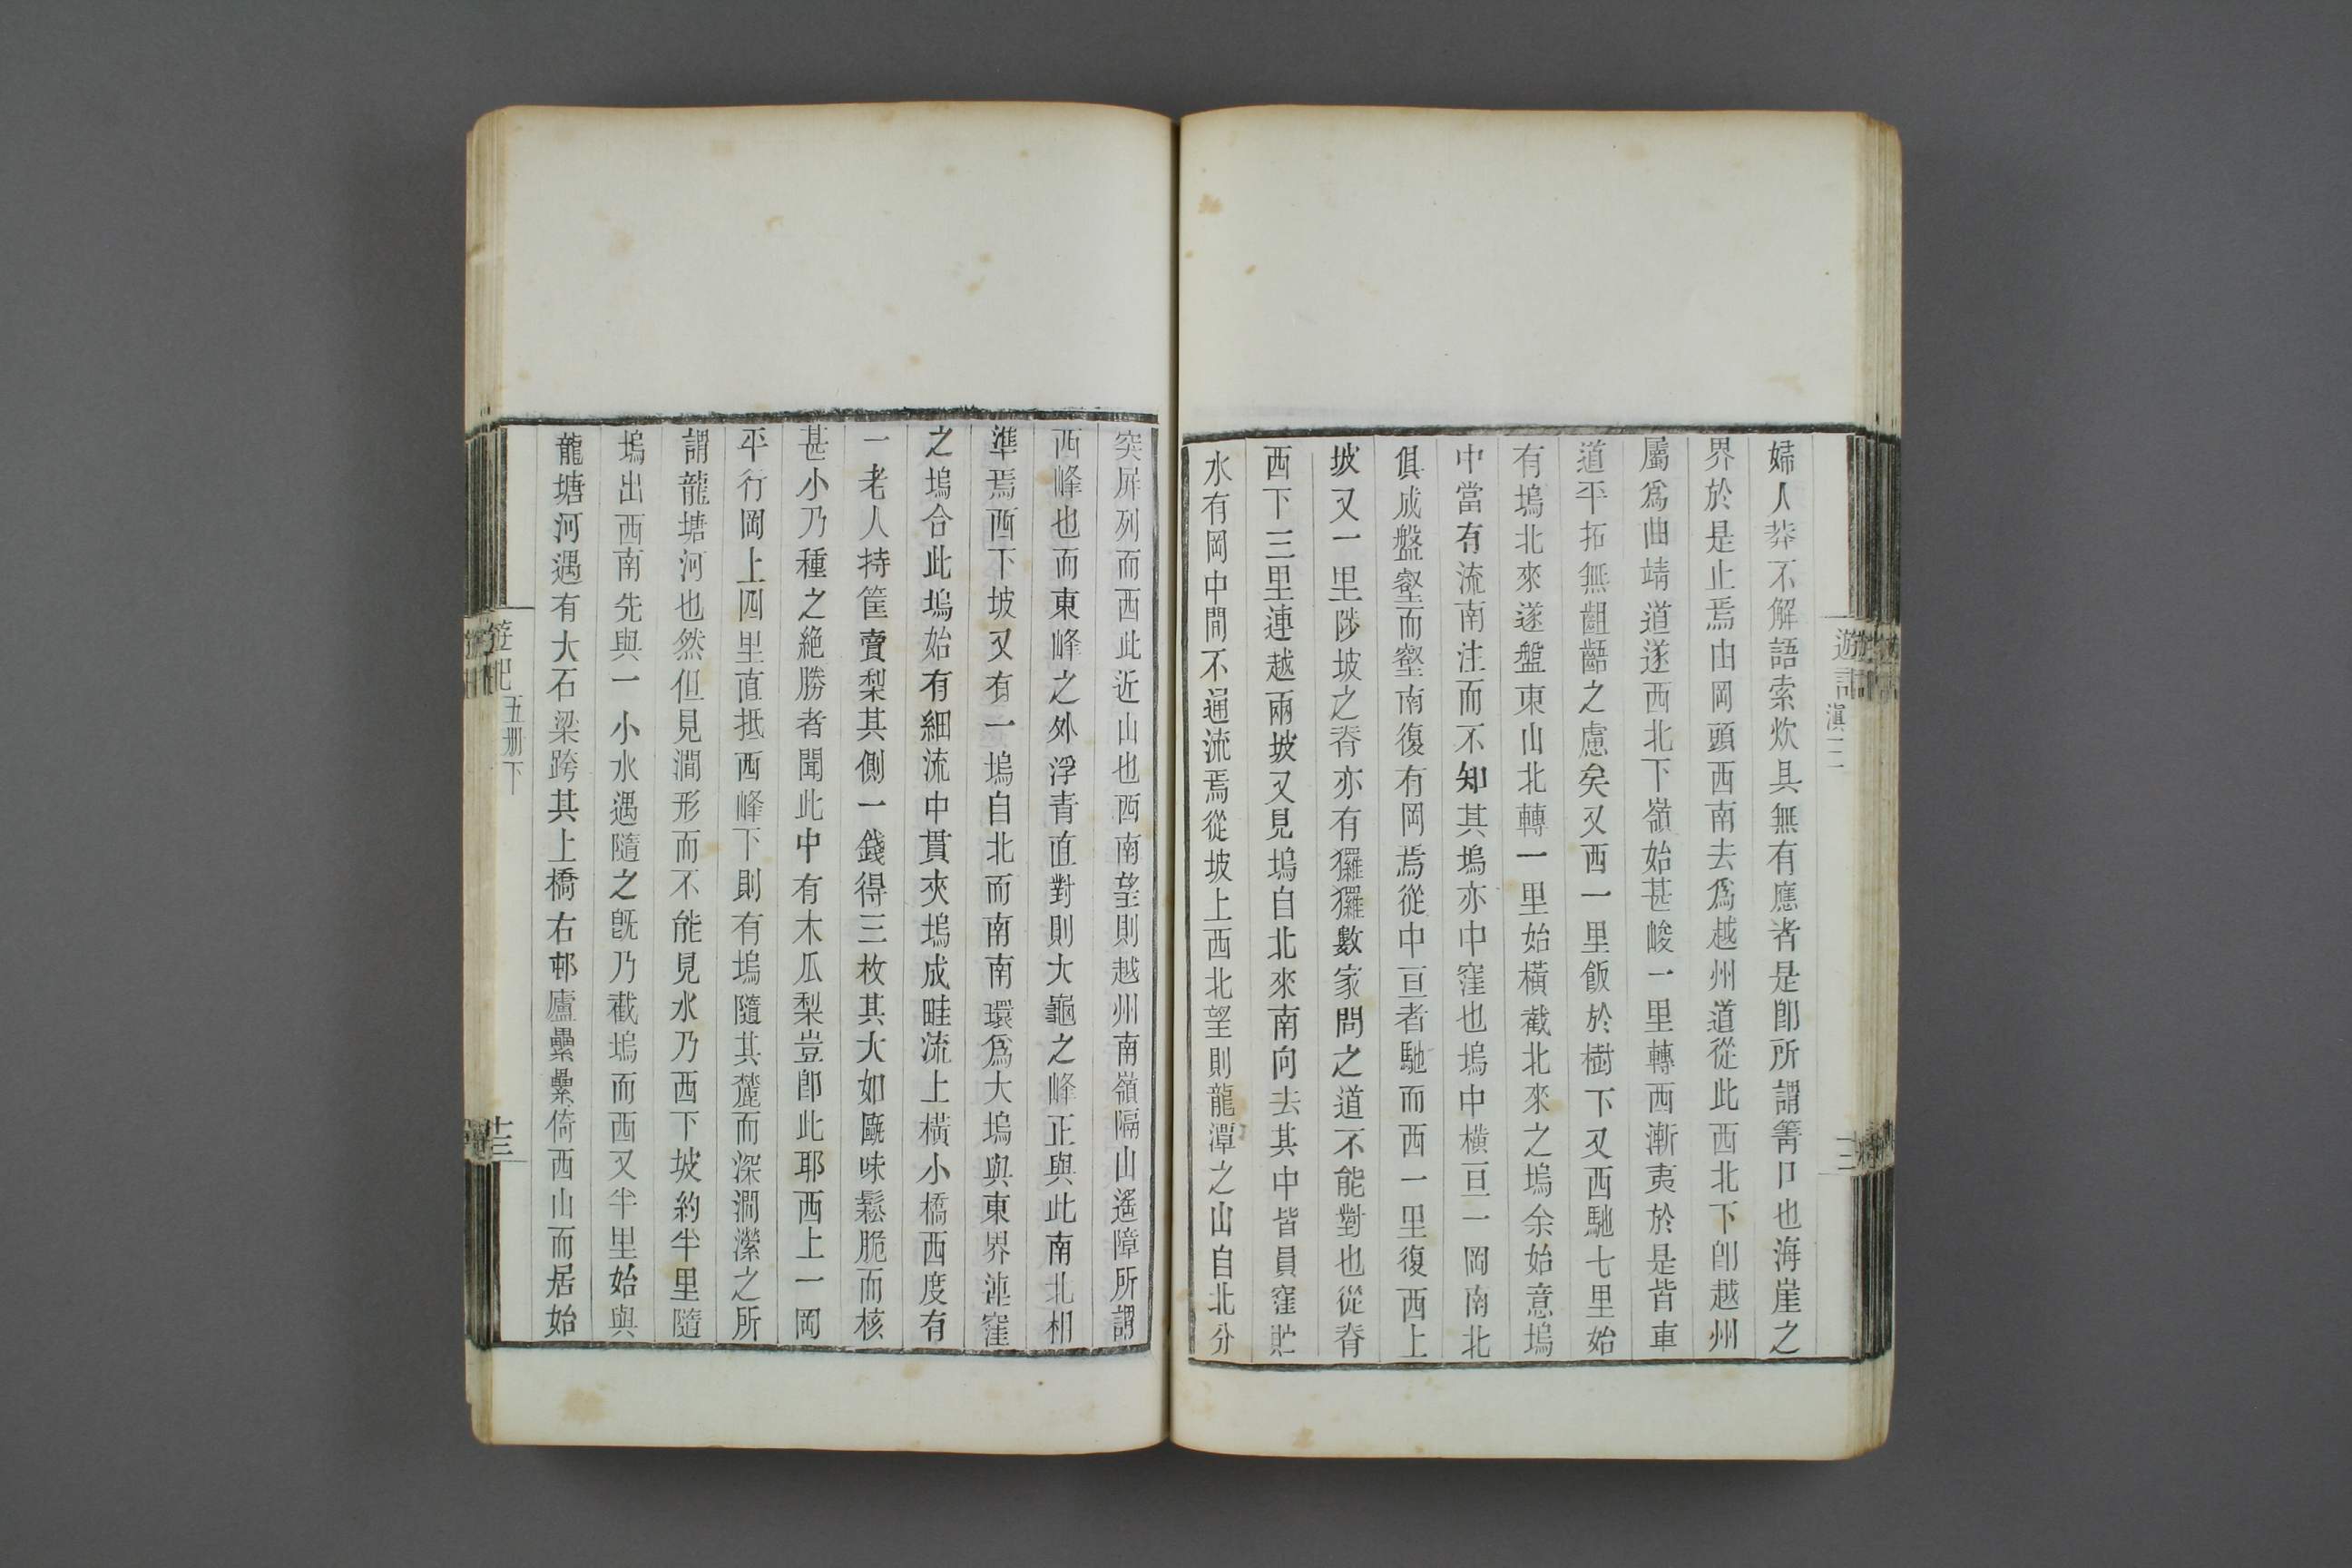 遊記
滇三
三
婦人莽不解語索炊具無有應者是卽所謂箐口也海崖之
界於是止焉由岡頭西南去爲越州道從此西北下卽越州
屬爲曲靖道遂西北下嶺始甚峻一里轉西漸夷於是皆車
道平拓無齟齬之慮矣又西一里飯於樹下又西馳七里始
有塢北來遂盤東山北轉一里始橫截北來之塢余始意塢
中當有流南注而不知其塢亦中窪也塢中橫亘一岡南北
俱成盤壑而壑南復有岡焉從中亘者馳而西一里復西上
坡又一里陟坡之脊亦有玀玀數家問之道不能對也從脊
西下三里連越兩坡又見塢自北來南向去其中皆員窪貯
水有岡中間不通流焉從坡上西北望則龍潭之山自北分
突屏列而西此近山也西南望則越州南嶺隔山遙障所謂
西峰也而東峰之外浮青直對則大龜之峰正與此南北相
準焉西下坡又有一塢自北而南南環爲大塢與東界連窪
之塢合此塢始有細流中貫夾塢成畦流上橫小橋西度有
一老人持筐賣梨其側一錢得三枚其大如甌味鬆脆而核
甚小乃種之絶勝者聞此中有木瓜梨豈卽此耶西上一岡
平行岡上四里直抵西峰下則有塢隨其麓而深澗瀠之所
謂龍塘河也然但見澗形而不能見水乃西下坡約半里隨
塢出西南先與一小水遇隨之旣乃截塢而西又半里始與
龍塘河遇有大石梁跨其上橋右邨廬纍纍倚西山而居始
遊記
五册下